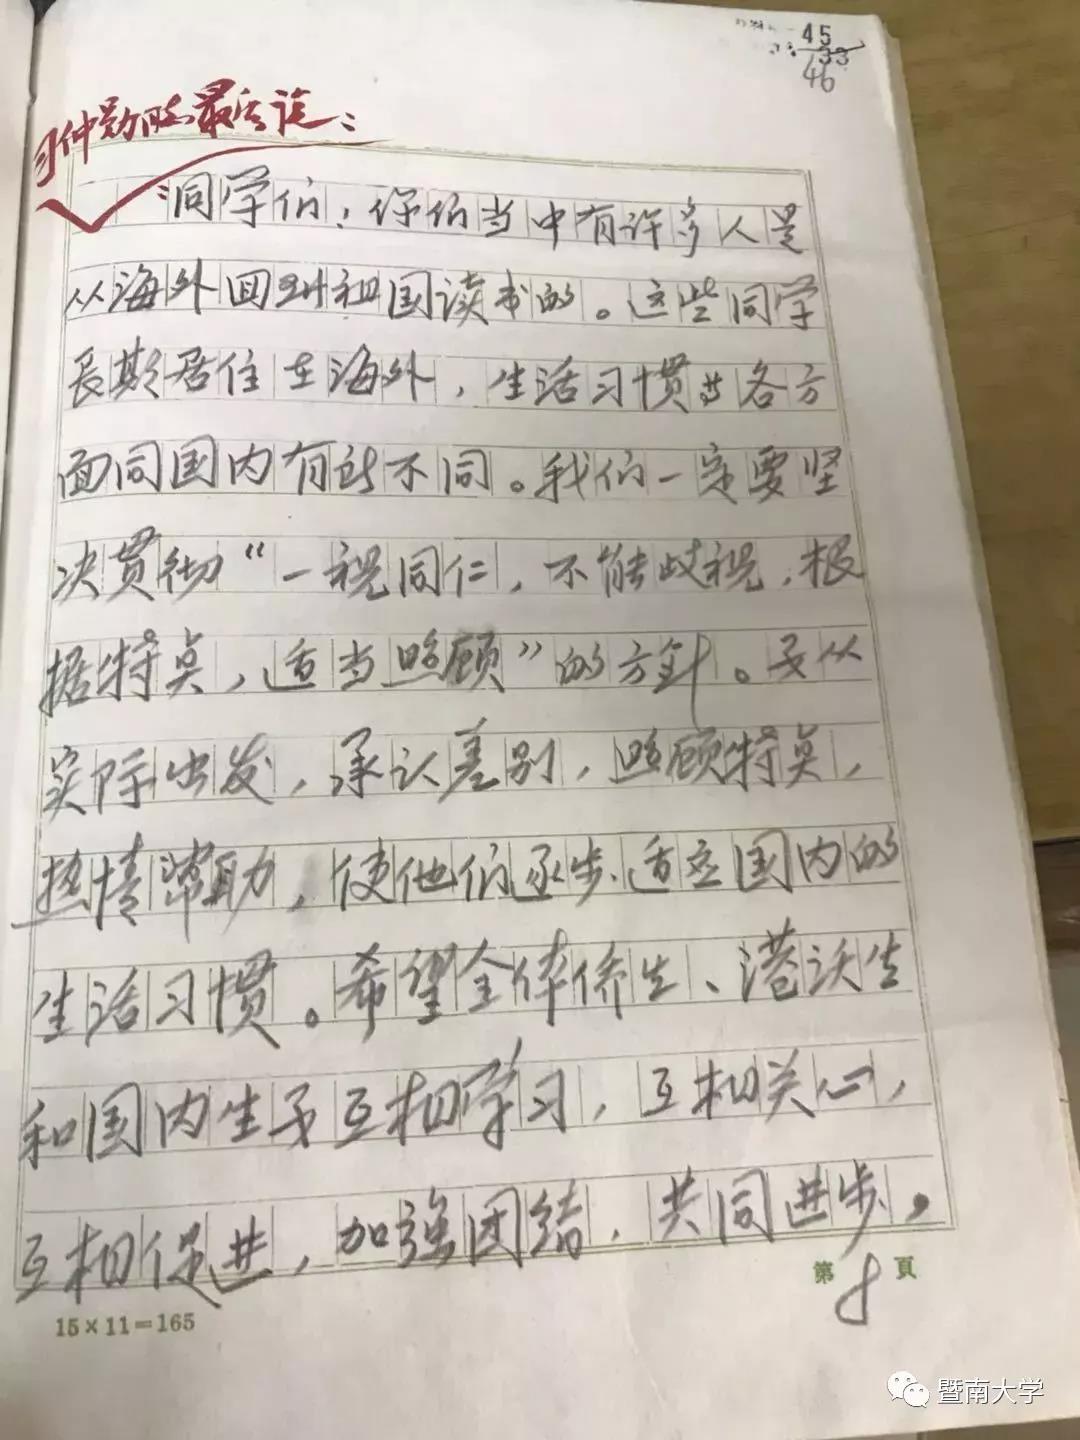 45
33
46
习仲勋同志最后说：
同学们：你们当中有许多人是
从海外回到祖国读书的。这些同学
长期居住在海外，生活习惯等各方
面同国内有所不同。我们一定要坚
决贯彻“一视同仁，不能歧视，根
据特点，适当照顾”的方針。要从
实际出发，承认差别，照顾特点，
热情帮助，使他们逐步适应国内的
生活习惯。希望全体侨生、港澳生
和国内生要互相学习，互相关心，
互相促进，加强团结，共同进步。
第8頁
15×11=165
暨南大学